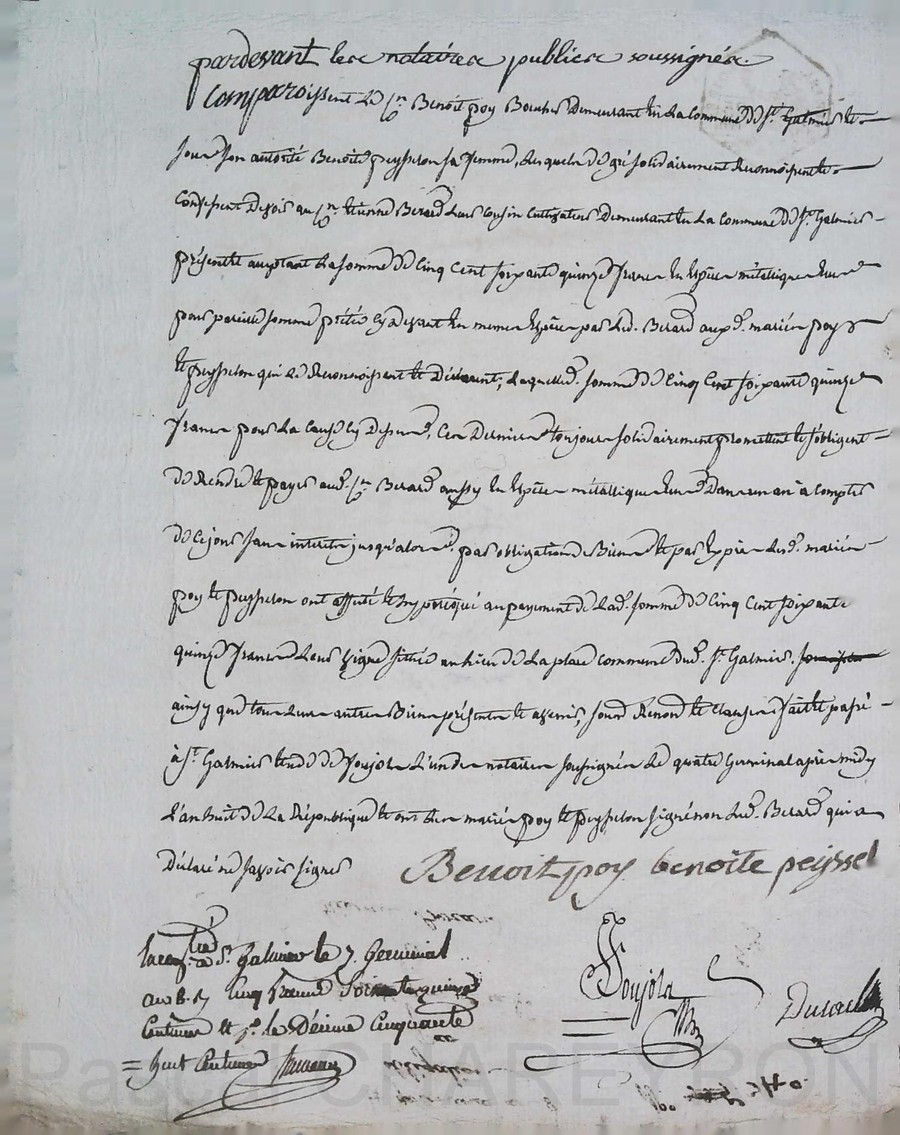 pardevant les notaires publics soussignés
Comparoissent le Cn. Benoit poy Boucher Demeurant en La commune de St. Galmier et
sous son autorité Benoite peysselon sa femme, Lesquels de gré solidairement Reconnoissent et
Confessent Devoir au Cn. Etienne Berard Leur cousin Cultivateur Demeurant en La commune de St. Galmier
présent et acceptant La somme de Cinq Cent soixante quinze francs En Espèce métallique
pour pareille somme prêtée cy devant En meme Espèce par Led. Berard auxd. mariés poy
et peysselon qui Le Reconnoissent et Déclarent, Laquelle d. somme de Cinq Cent soixante quinze
francs pour La Cause cy Dessus d., Ces Derniers toujours solidairement promettent et s'obligent
de Rendre et payer aud. Cn. Berard aussy En Espèce métallique Dans un an à Compter
de ce jour sans interet jusqu'alors par obligation de Biens et par Exprès Lesd. mariés
poy et peysselon ont affecté et hypotéqué au payement de Lad. somme de Cinq Cent soixante
quinze francs Leur vigne située au lieu de La plare commune dud. St. Galmier.
ainsy que tous Leurs autres Biens présents et avenir, sous Renond. et Clauses fait et passé
à St. Galmier Etude de Soujols L'un des notaires soussignés Le quatre Germinal après midy
L'an huit de La République et ont Les mariés poy et peysselon signé non Led. Berard qui a
Déclaré ne savoir signer
Benoit poy benoite peyssel
Enregtré à St. Galmier le 7. Germinal
an 8. Cinq francs Soixante quinze
Centimes et pr. le Décime Cinquante
= huit Centimes
Soujols